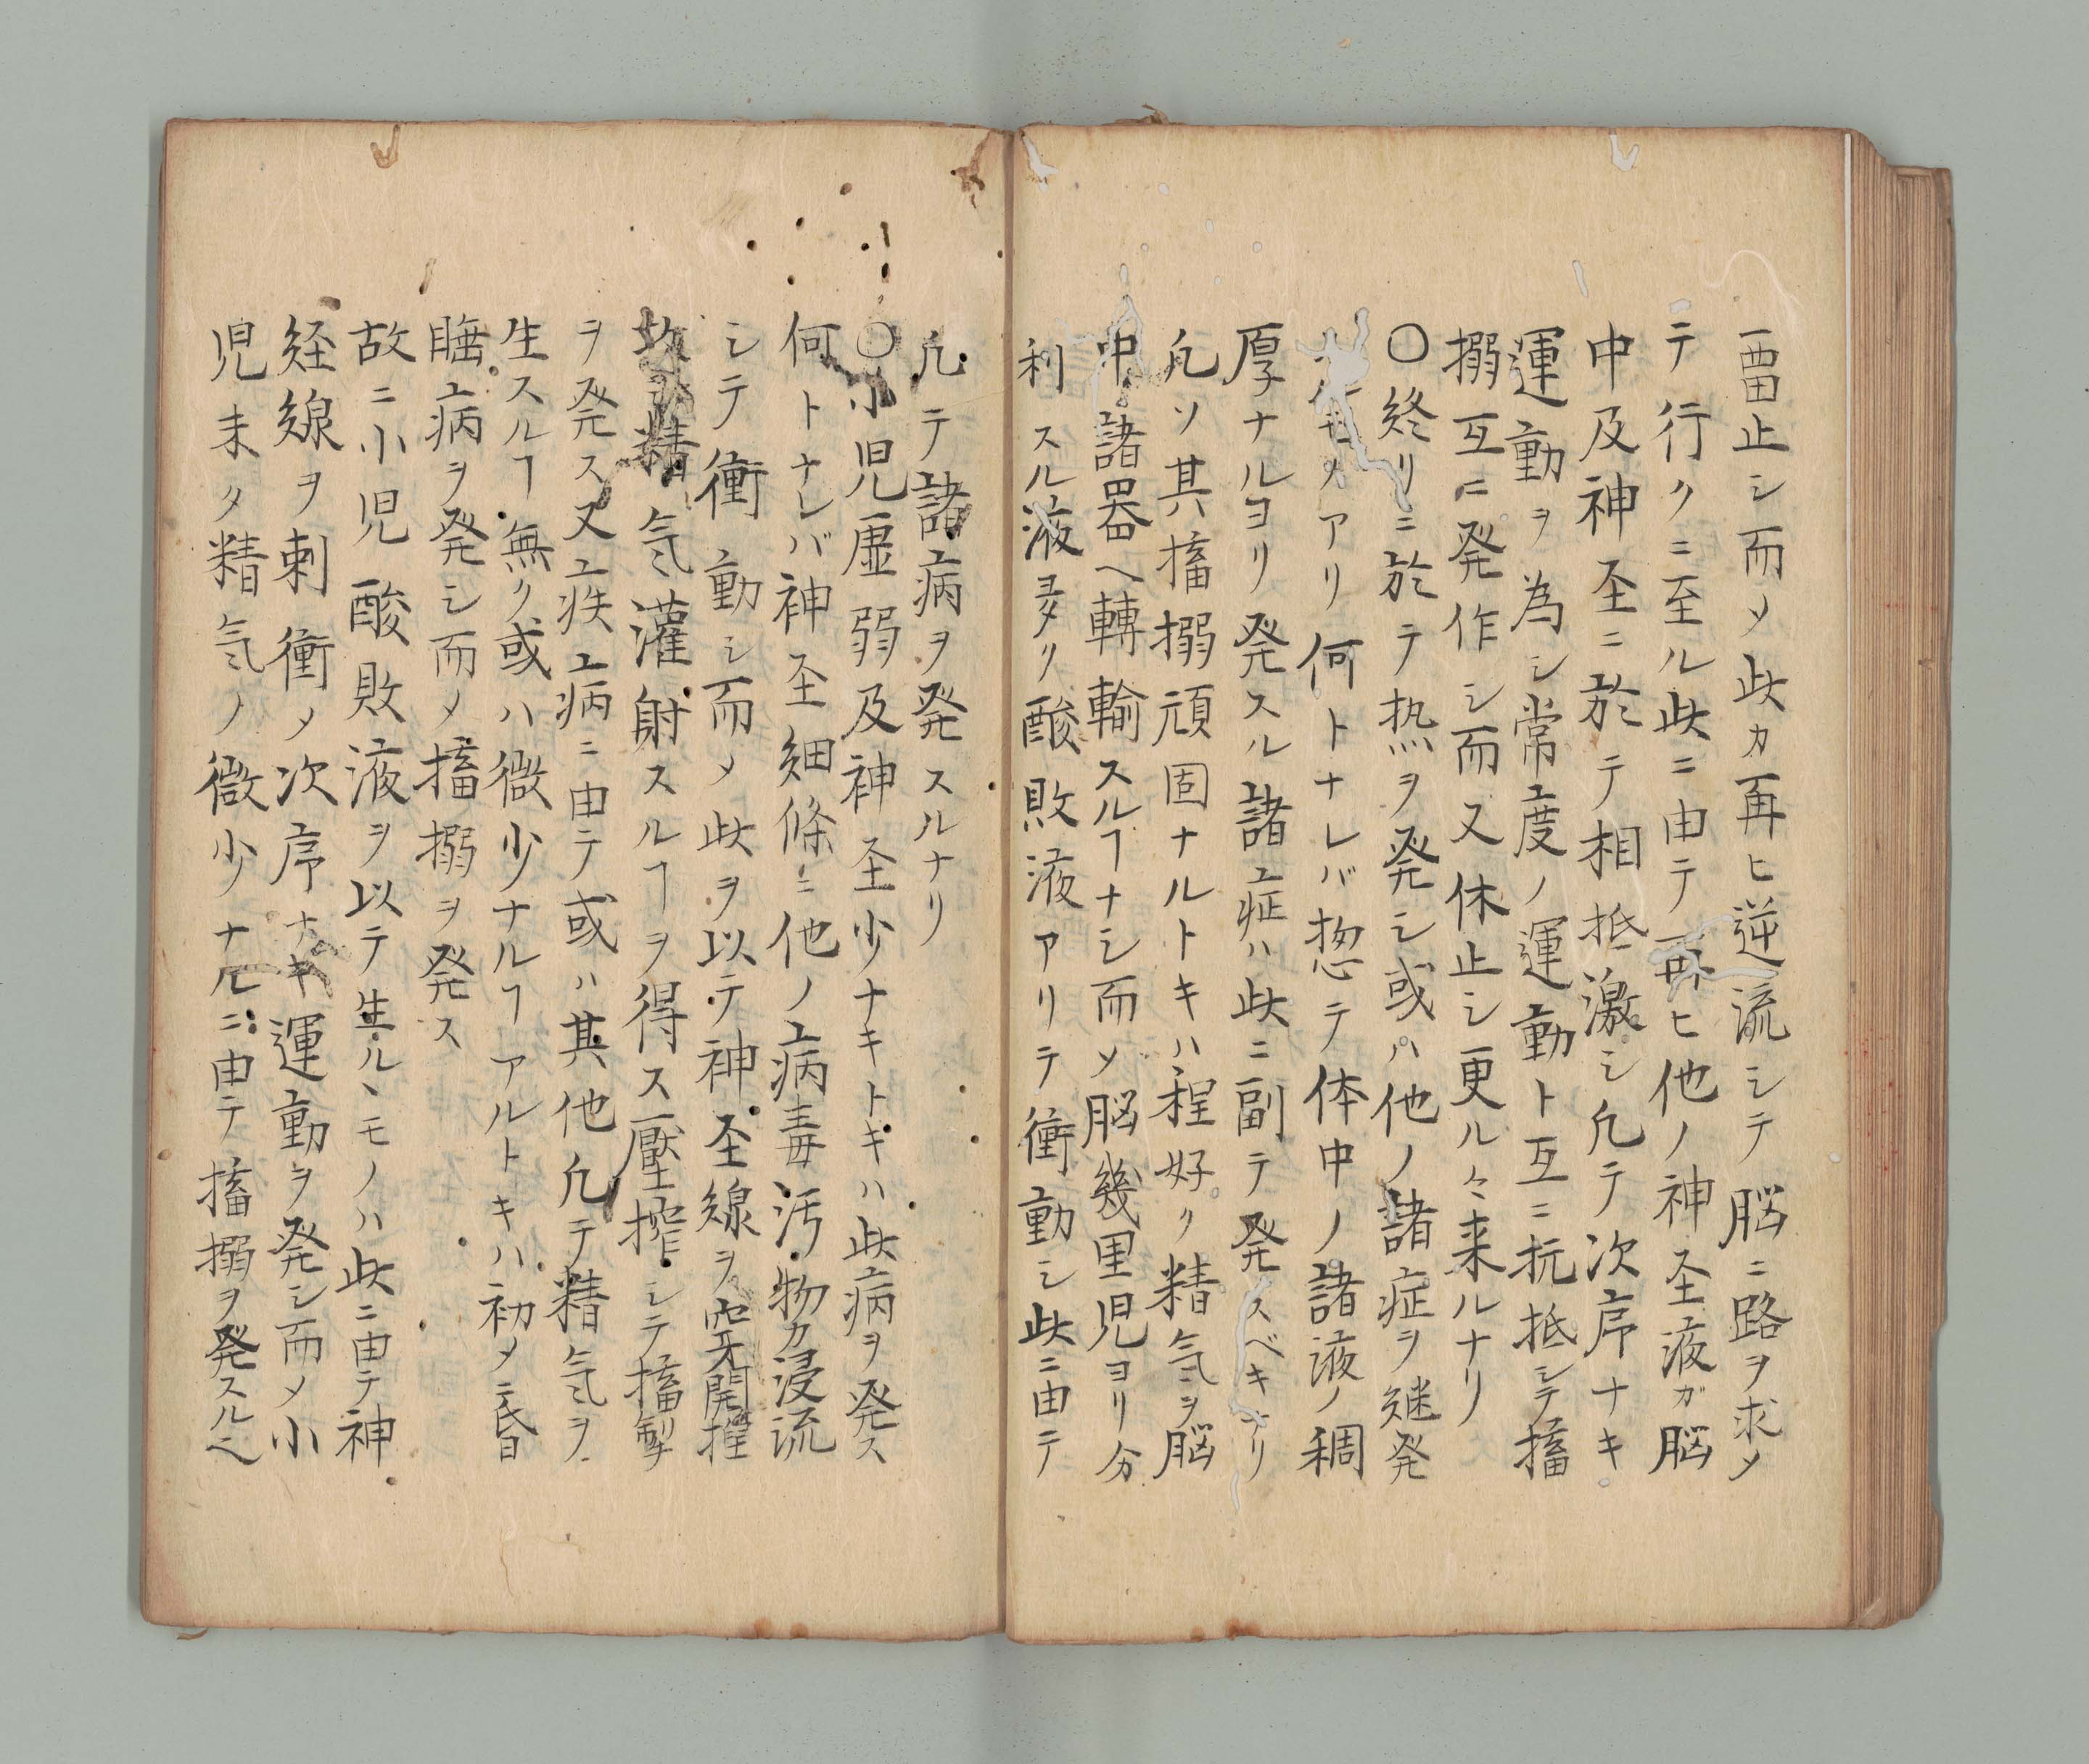 畱止シ而メ此カ再ヒ逆流シテ脳ニ路ヲ求メ
テ行クニ至ル此ニ由テ再ヒ他ノ神圣液ガ脳
中及神圣ニ於テ相抵激シ凢テ次序ナキ
運動ヲ為シ常度ノ運動ト互ニ抗抵シテ搐
搦互ニ発作シ而又休止シ更ル々来ルナリ
〇終リニ於テ热ヲ発シ或ハ他ノ諸症ヲ継発
アリ何トナレバ惣テ体中ノ諸液ノ稠
厚ナルヨリ発スル諸症ハ此ニ副テ発スベキナリ
凢ソ其搐搦頑固ナルトキハ程好ク精気ヲ脳
中諸器へ轉輸スルヿナシ而メ脳幾里児ヨリ分
利スル液ヨリ酸敗液アリテ衝動シ此ニ由テ
凢テ諸病ヲ発スルナリ
〇小児虚弱及神圣少ナキトキハ此病ヲ発ス
何トナレバ神圣細條ニ他ノ病毒汚物カ浸流
シテ衝動シ而メ此ヲ以テ神圣線ヲ窄閉搉
故ヲ精気灌射スルヿヲ得ス壓搾シテ搐掣
ヲ発ス又疾病ニ由テ或ハ其他凢テ精気ヲ
生スルヿ無ク或ハ微少ナルヿアルトキハ初メテ昏
睡病ヲ発シ而メ搐搦ヲ発ス
故ニ小児酸敗液ヲ以テ生ルヽモノハ此ニ由テ神
経線ヲ刺衝メ次序ナキ運動ヲ発シ而メ小
児未タ精気ノ微少ナルニ由テ搐搦ヲ発スルヘ